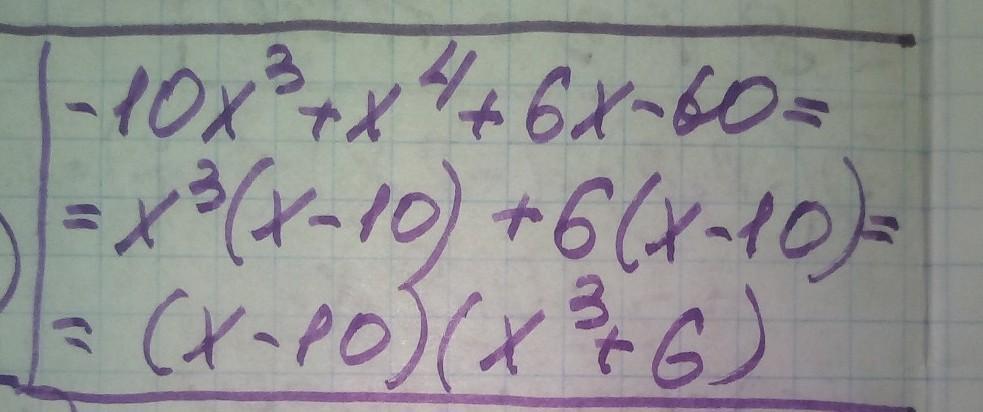 -10x³+x⁴+6x-60=
=x³(x-10)+6(x-10)=
=(x-10)(x³+6)